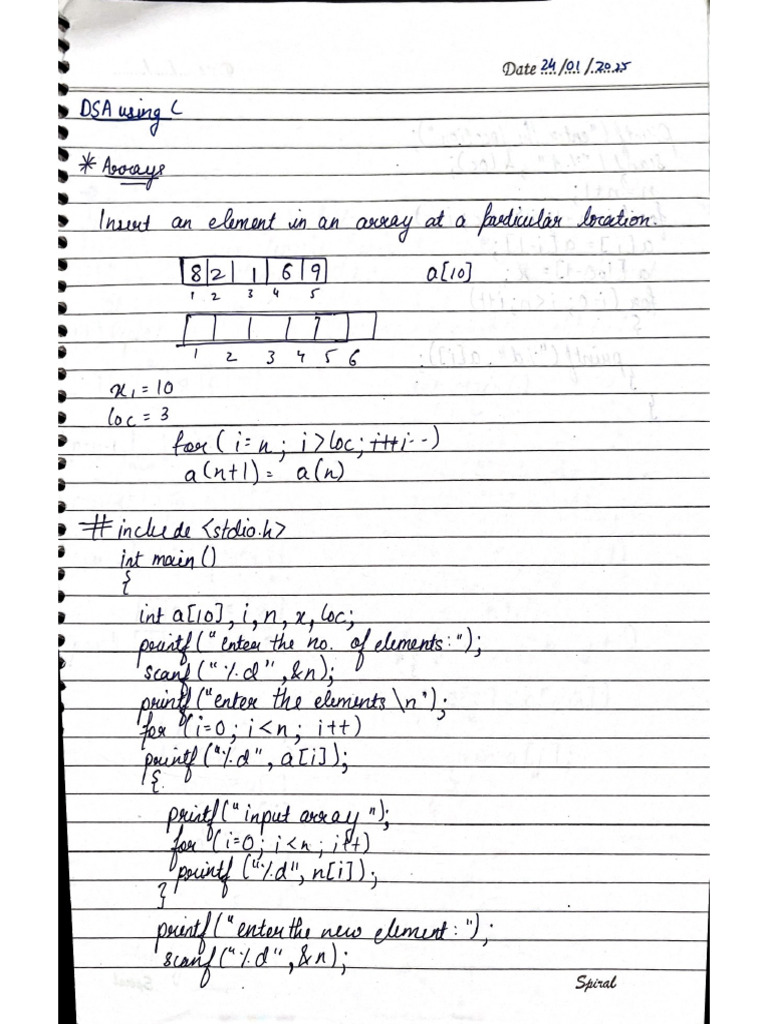 Date 24/01/2025
DSA using C
* Arrays
Insert an element in an array at a particular location.
8 2 1 6 9 a[10]
1 2 3 4 5
1 2 3 4 5 6
x1 = 10
loc = 3
for ( i = n ; i > loc ; i++ i-- )
a(n+1) = a(n)
# include <stdio.h>
int main ()
{
int a[10], i, n, x, loc;
printf("enter the no. of elements:");
scanf("%d", &n);
printf("enter the elements \n");
for (i=0; i<n; i++)
printf("%d", a[i]);
{
printf("input array");
for (i=0; i<n; i++)
printf("%d", n[i]);
}
printf("enter the new element:");
scanf("%d", &n);
Spiral